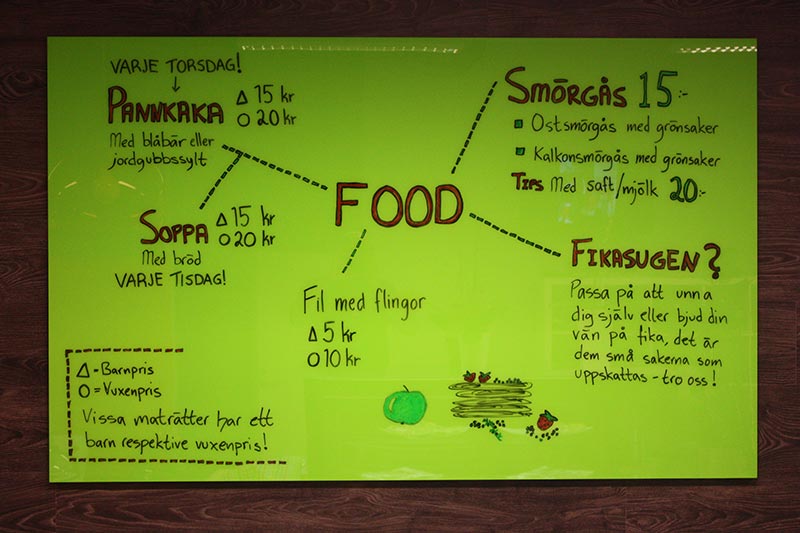 VARJE TORSDAG!
PANNKAKA
△ 15 kr
○ 20 kr
Med blåbär eller
jordgubbssylt
SOPPA
△ 15 kr
○ 20 kr
Med bröd
VARJE TISDAG!
FOOD
Fil med flingor
△ 5 kr
○ 10 kr
SMÖRGÅS 15:-
Ostsmörgås med grönsaker
Kalkonsmörgås med grönsaker
TIPS Med saft/mjölk 20:-
FIKASUGEN?
Passa på att unna
dig själv eller bjud din
vän på fika, det är
dem små sakerna som
uppskattas - tro oss!
△ - Barnpris
○ = Vuxenpris
Vissa maträtter har ett
barn respektive vuxenpris!